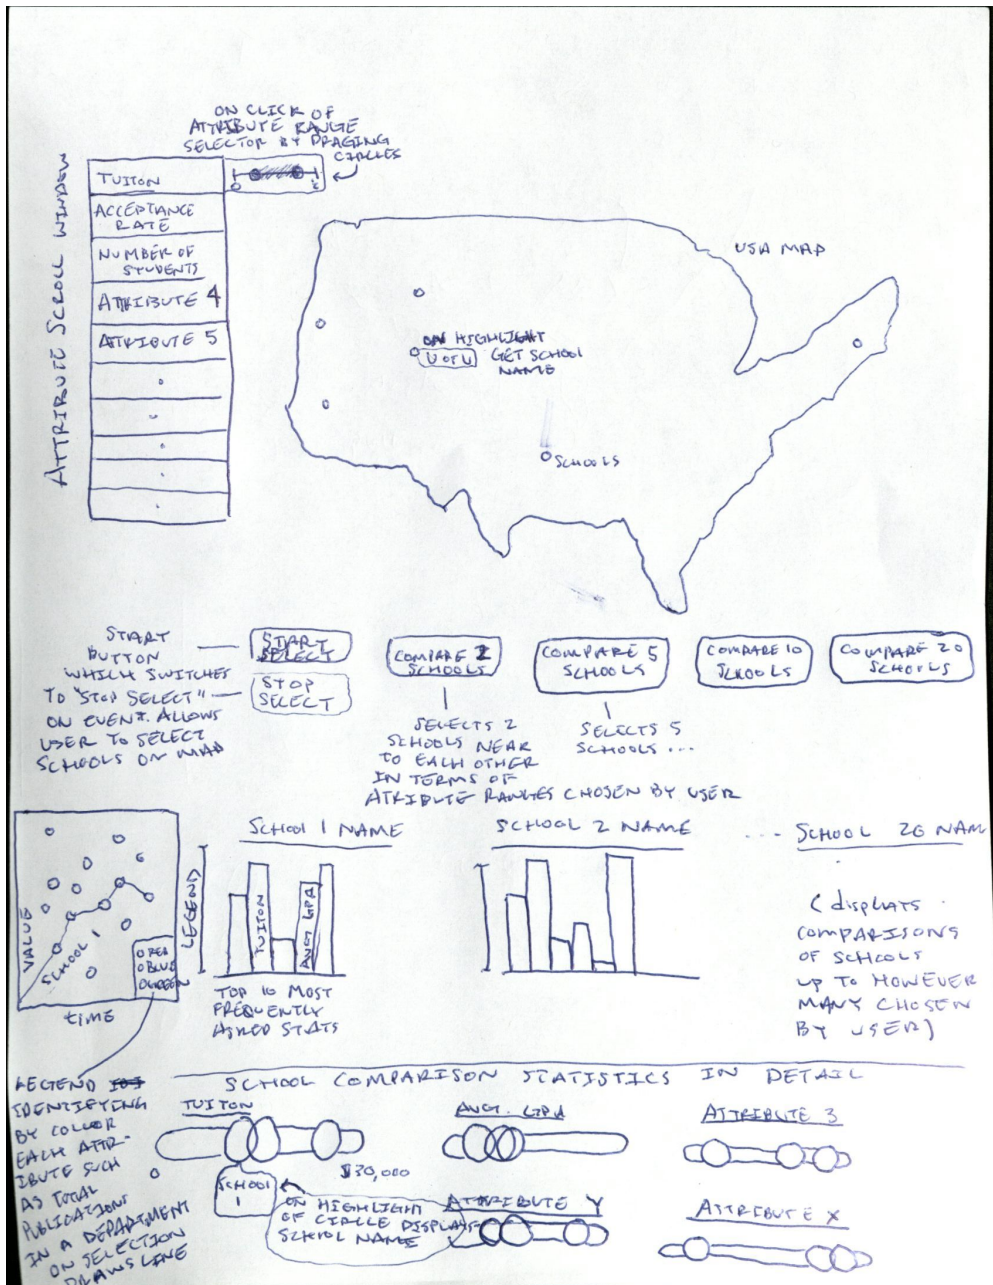 ON CLICK OF
ATTRIBUTE RANGE
SELECTOR BY DRAGING
CIRCLES
ATTRIBUTE SCROLL WINDOW
TUITON
ACCEPTANCE
RATE
NUMBER OF
STUDENTS
ATTRIBUTE 4
ATTRIBUTE 5
USA MAP
ON HIGHLIGHT
U OF U GET SCHOOL
NAME
SCHOOLS
START
BUTTON
WHICH SWITCHES
TO "STOP SELECT"
ON EVENT. ALLOWS
USER TO SELECT
SCHOOLS ON MAP
START
SELECT
STOP
SELECT
COMPARE 2
SCHOOLS
COMPARE 5
SCHOOLS
COMPARE 10
SCHOOLS
COMPARE 20
SCHOOLS
SELECTS 2
SCHOOLS NEAR
TO EACH OTHER
IN TERMS OF
ATRIBUTE RANGES CHOSEN BY USER
SELECTS 5
SCHOOLS ...
VALUE
SCHOOL 1
O RED
O BLUE
O GREEN
TIME
LEGEND
SCHOOL 1 NAME
TUITON
AVG GPA
TOP 10 MOST
FREQUENTLY
ASKED STATS
SCHOOL 2 NAME
... SCHOOL 20 NAM
( displays
COMPARISONS
OF SCHOOLS
UP TO HOWEVER
MANY CHOSEN
BY USER)
LEGEND
IDENTIFYING
BY COLLOR
EACH ATTR-
IBUTE SUCH
AS TOTAL
PUBLICATIONS
IN A DEPARTMENT
ON SELECTION
DRAWS LINE
SCHOOL COMPARISON STATISTICS IN DETAIL
TUITON
O
$30,000
SCHOOL
1
ON HIGHLIGHT
OF CIRCLE DISPLAYS
SCHOOL NAME
AVG. GPA
ATTRIBUTE 3
ATTRIBUTE Y
ATTRIBUTE X